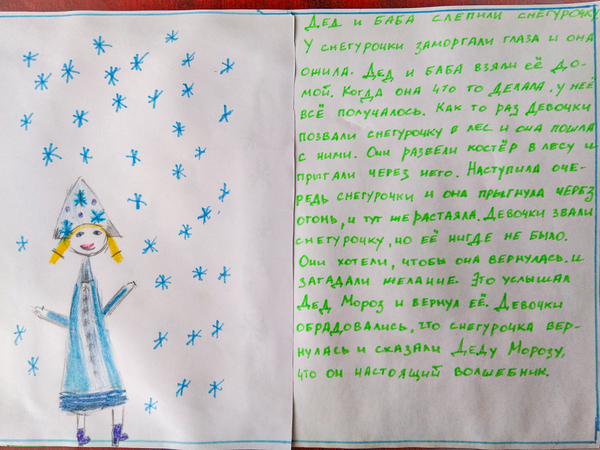 Дед и баба слепили снегурочку.
У снегурочки заморгали глаза и она
ожила. Дед и баба взяли её до-
мой. Когда она что то делала, у неё
всё получалось. Как то раз девочки
позвали снегурочку в лес и она пошла
с ними. Они развели костёр в лесу и
прыгали через него. Наступила оче-
редь снегурочки и она прыгнула через
огонь, и тут же растаяла. Девочки звали
снегурочку, но её нигде не было.
Они хотели, чтобы она вернулась и
загадали желание. Это услышал
Дед Мороз и вернул её. Девочки
обрадовались, что снегурочка вер-
нулась и сказали Деду Морозу,
что он настоящий волшебник.